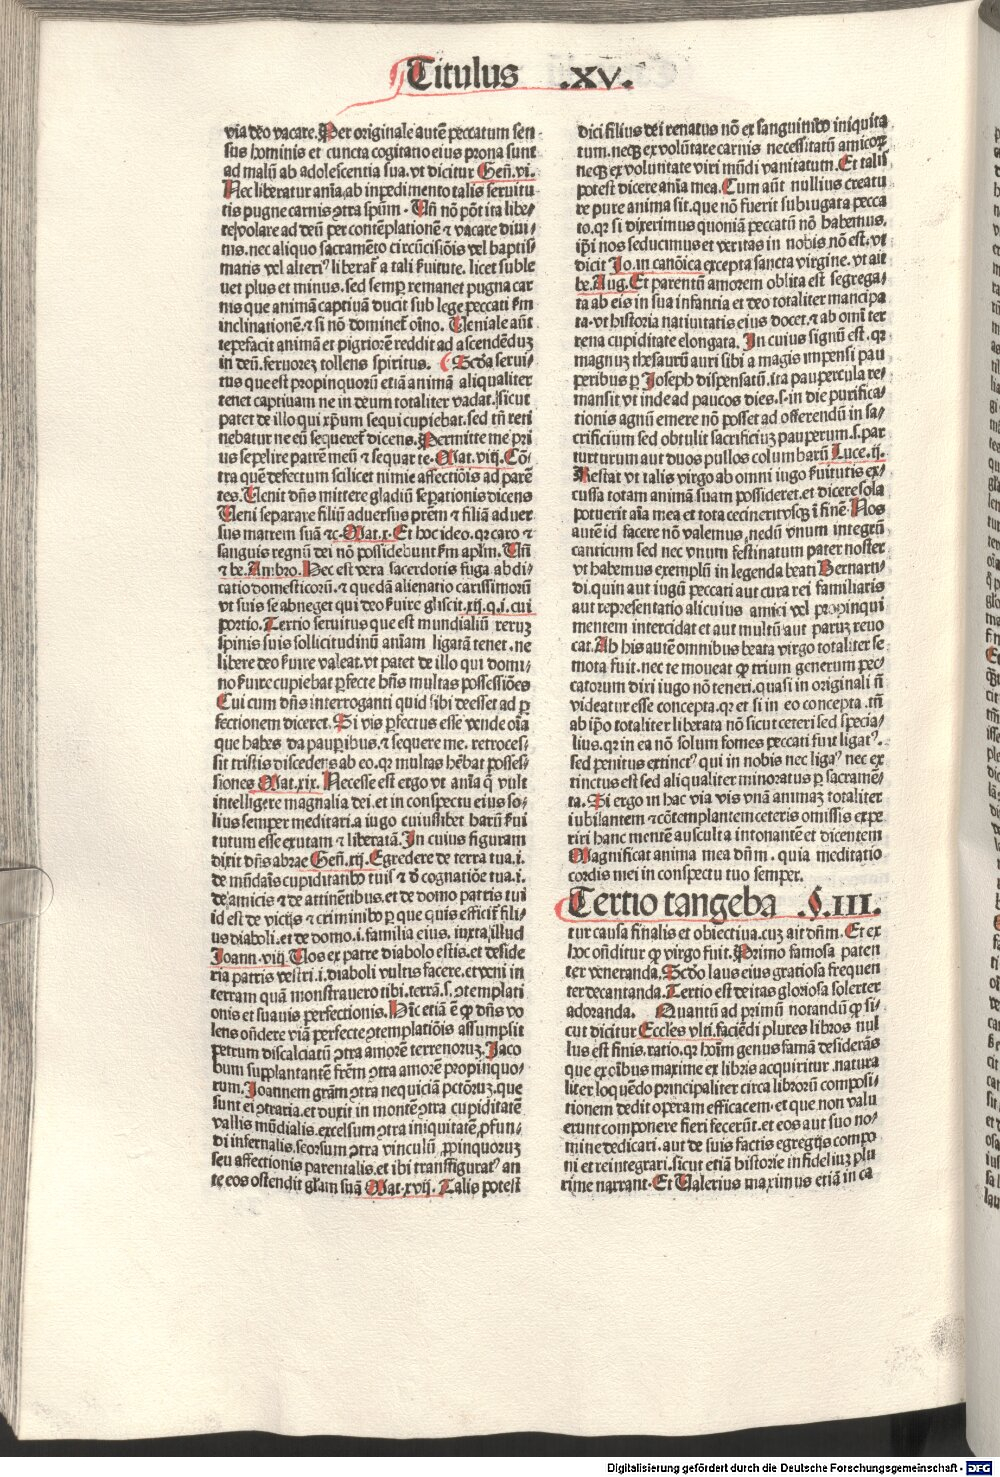 Titulus .XV.
via deo vacare. Per originale autē peccatum sen
sus hominis et cuncta cogitatio eius prona sunt
ad malū ab adolescentia sua. vt dicitur Geñ. vi.
Nec liberatur aīa ab inpedimento talis seruitu
tis pugne carnis ꝯtra spūm. Uñ nō pōt ita libe⸗
re volare ad deū per contēplationē ⁊ vacare diui⸗
nis. nec aliquo sacramēto circūcisiōis vel baptis⸗
matis vel alteriꝰ liberat̄ a tali ẜuitute. licet suble
uet plus et minus. sed semꝑ remanet pugna car
nis que animā captiuā ducit sub lege peccati ẜm
inclinationē. ⁊ si nō dominet̄ oīno. Ueniale aūt
tepefacit animā et pigriorē reddit ad ascendēduꝫ
in deū. feruoreꝫ tollens spiritus. Scd̄a serui⸗
tus que est propinquorū etiā animā aliqualiter
tenet captiuam ne in deum totaliter vadat. sicut
patet de illo qui xp̄um sequi cupiebat. sed tñ reti
nebatur ne eū sequeret̄ dicens. Permitte me pri
us sepelire patrē meū ⁊ sequar te. Mat. viij. Cō⸗
tra quē defectum scilicet nimie affectiōis ad parē
tes. Uenit dñs mittere gladiū sepationis dicens
Ueni separare filiū aduersus prēm ⁊ filiā aduer
sus matrem suā ⁊c. Mat. x. Et hoc ideo. qꝛ caro ⁊
sanguis regnū dei nō possidebunt ẜm apl̄m. Uñ
⁊ be. Ambro. Hec est vera sacerdotis fuga abdi⸗
catio domesticorū. ⁊ quedā alienatio carissimorū
vt suis se abneget qui deo ẜuire gliscit. xij. q. i. cui
portio. Tertio seruitus que est mundialiū reruꝫ
spinis suis sollicitudinū aīam ligatā tenet. ne
libere deo ẜuire valeat. vt patet de illo qui domi⸗
no ẜuire cupiebat ꝑfecte hñs multas possessiōes
Cui cum dñs interroganti quid sibi deesset ad ꝑ
fectionem diceret. Si vis ꝑfectus esse vende oīa
que habes da pauꝑibus. ⁊ sequere me. retroces⸗
sit tristis discedens ab eo. qꝛ multas hēbat posses⸗
siones Mat. xix. Necesse est ergo vt aīa q̄ vult
intelligere magnalia dei. et in conspectu eius so⸗
lius semper meditari. a iugo cuiuslibet harū ẜui
tutum esse exutam ⁊ liberatā. In cuius figuram
dixit dñs abrae Geñ. xij. Egredere de terra tua. i.
de mūdaīs cupiditatibꝰ tuis ⁊ d̄ cognatiōe tua. i.
de amicis ⁊ de attinētibus. et de domo patris tui
id est de vicijs ⁊ criminibꝰ ꝑ que quis efficit̄ fili⸗
us diaboli. et de domo. i. familia eius. iuxta illud
Joann. viij. Uos ex patre diabolo estis. et deside
ria patris vestri. i. diaboli vultis facere. et veni in
terram quā monstrauero tibi. terrā. s. ꝯtemplati
onis et suauis perfectionis. Hic etiā ē ꝙ dñs vo
lens oñdere viā perfecte ꝯtemplatiōis assumpsit
petrum discalciatū ꝯtra amorē terrenoruꝫ. Jaco
bum supplantantē frēm ꝯtra amorē propinquo⸗
rum. Joannem grām ꝯtra nequiciā pctōruꝫ. que
sunt ei ꝯtraria. et duxit in montē ꝯtra cupiditatē
vallis mūdialis. excelsum ꝯtra iniquitatē ꝓfun⸗
di infernalis. seorsum ꝯtra vinculū ꝓpinquoruꝫ
seu affectionis parentalis. et ibi transfiguratꝰ an
te eos ostendit gl̄am suā Mat. xvij. Talis potest
dici filius dei renatus nō ex sanguinibꝰ iniquita
tum. neqꝫ ex volūtate carnis necessitatū amicoꝝ
neqꝫ ex voluntate viri mūdi vanitatum. Et talis
potest dicere aīa mea. Cum aūt nullius creatu
re pure anima sit. que nō fuerit subiugata pecca
to. qꝛ si dixerimus quoniā peccatū nō habemus.
ip̄i nos seducimus et veritas in nobis nō est. vt
dicit Jo. in canōica excepta sancta virgine. vt ait
be. Aug. Et parentū amorem oblita est segrega⸗
ta ab eis in sua infantia et deo totaliter mancipa
ta. vt historia natiuitatis eius docet. ⁊ ab omī ter
rena cupiditate elongata. In cuius signū est. qꝛ
magnuꝫ thesaurū auri sibi a magis impensi pau
peribus ꝑ Joseph dispensatū. ita paupercula re⸗
mansit vt inde ad paucos dies. s. in die purifica⸗
tionis agnū emere nō posset ad offerendū in sa⸗
crificium sed obtulit sacrificiuꝫ pauperum. s. par
turturum aut duos pullos columbarū Luce. ij.
Restat vt talis virgo ab omni iugo ẜuitutis ex⸗
cussa totam animā suam possideret. et dicere sola
potuerit aīa mea et tota cecinerit vsqꝫ ī finē. Nos
autē id facere nō valemus. nedū vnum integrū
canticum sed nec vnum festinatum pater noster
vt habemus exemplū in legenda beati Bernarti⸗
di. quin aut iugū peccati aut cura rei familiaris
aut representatio alicuius amici vel propinqui
mentem intercidat et aut multū aut paruꝫ reuo
cat. Ab his autē omnibus beata virgo totaliter se
mota fuit. nec te moueat ꝙ trium generum pec⸗
catorum diri iugo nō teneri. quasi in originali ñ
videatur esse concepta. qꝛ et si in eo concepta. tñ
ab ip̄o totaliter liberata nō sicut ceteri sed specia⸗
lius. qꝛ in ea nō solum fomes peccati fuit ligatꝰ.
sed penitus extinctꝰ qui in nobis nec ligaꝰ nec ex
tinctus est sed aliqualiter minoratus ꝑ sacramē⸗
ta. Si ergo in hac via vis vnā animaꝫ totaliter
iubilantem ⁊ cōtemplantem ceteris omissis expe
riri hanc mentē ausculta intonantē et dicentem
Magnificat anima mea dñm. quia meditatio
cordis mei in conspectu tuo semper.
Tertio tangeba .§.III.
tur causa finalis et obiectiua. cuꝫ ait dñm. Et ex
hoc oñditur ꝙ virgo fuit. Primo famosa paten
ter veneranda. Scd̄o laus eius gratiosa frequen
ter decantanda. Tertio est deitas gloriosa solerter
adoranda. Quantū ad primū notandū ꝙ si⸗
cut dicitur Eccles vlti. faciēdi plures libros nul
lus est finis. ratio. qꝛ hoīm genus famā desiderās
que ex oībus maxime ex libris acquiritur. natura
liter loquēdo principaliter circa librorū composi⸗
tionem dedit operam efficacem. et que non valu
erunt componere fieri fecerūt. et eos aut suo no⸗
mine dedicari. aut de suis factis egregijs compo
ni et reintegrari. sicut etiā historie infideliuꝫ plu
rime narrant. Et Ualerius maximus etiā in ca
Digitalisierung gefördert durch die Deutsche Forschungsgemeinschaft - DFG